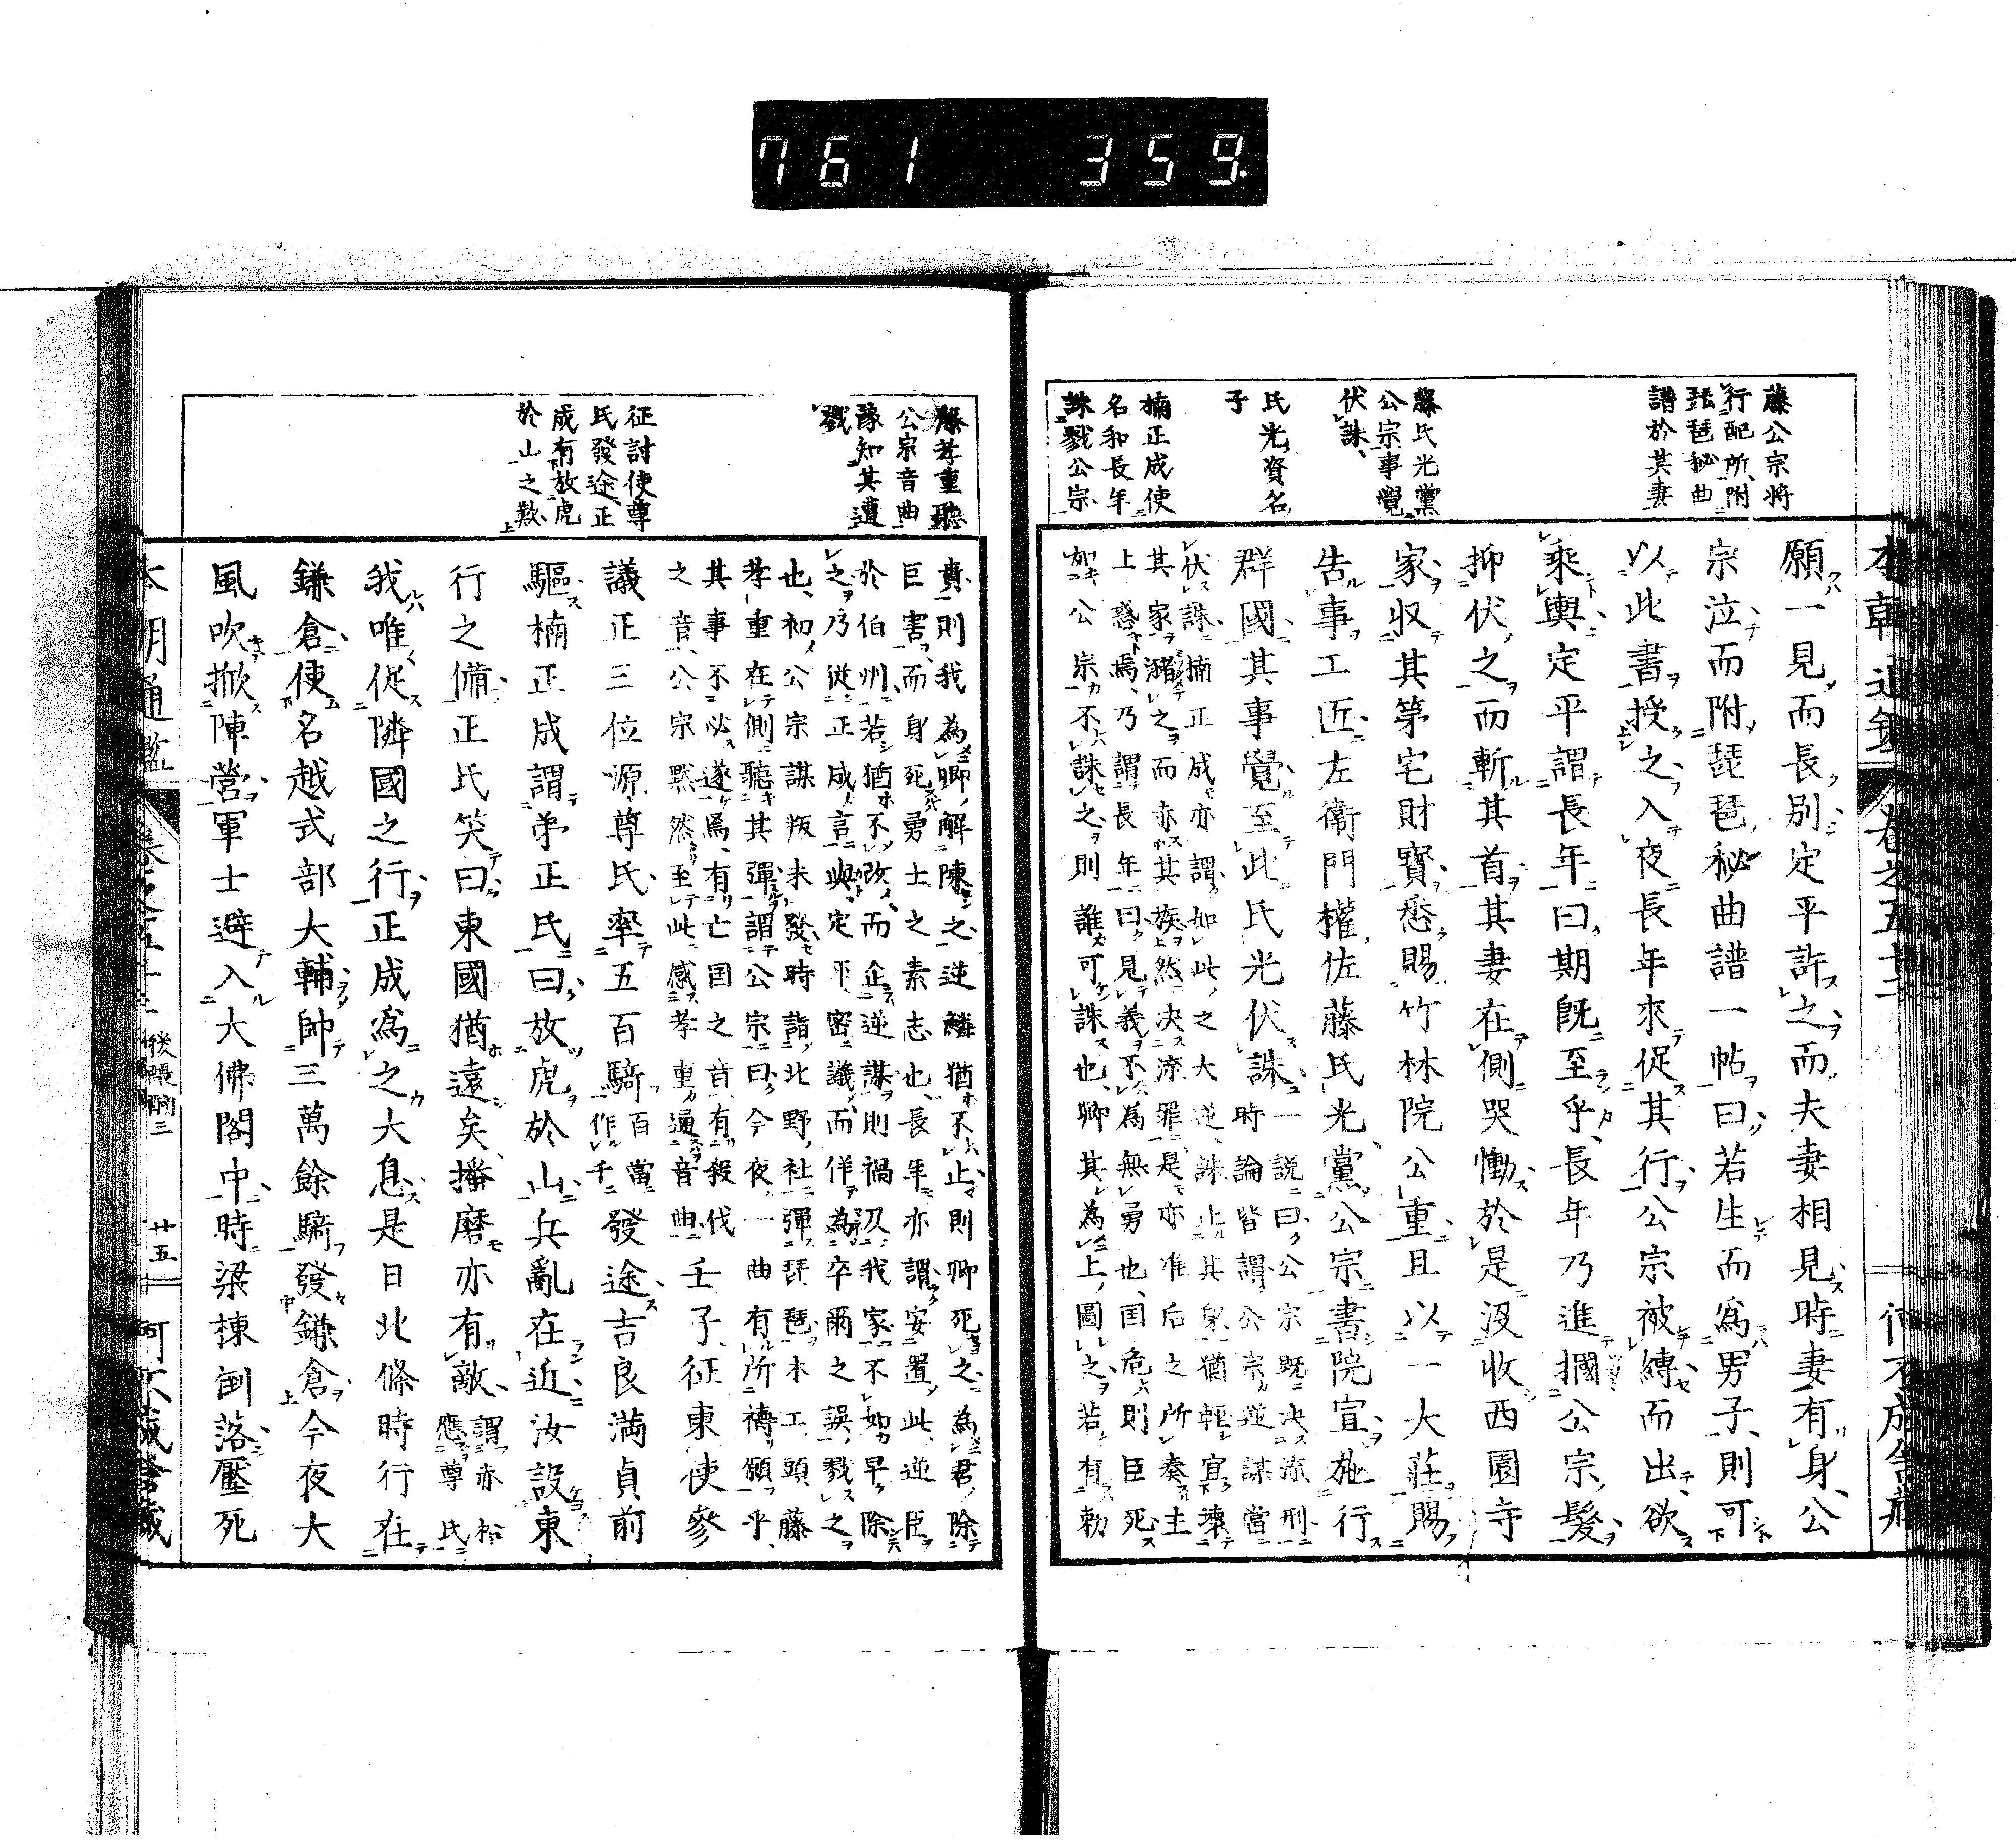 761 359
藤公宗将
行配所附
琵琶秘曲
譜於其妻
藤氏光黨
公宗事覺
伏誅
氏光資名
子
楠正成使
名和長年
誅戮公宗
願一見而長別定平許之而夫妻相見時妻有身公
宗泣而附琵琶秘曲譜一帖曰若生而爲男子則可
以此書授之入夜長年來促其行公宗被縛而出欲
乘輿定平謂長年曰期既至乎長年乃進摑公宗髮
抑伏之而斬其首其妻在側哭慟於是沒收西園寺
家收其第宅財寶悉賜竹林院公重且以一大莊賜
告事工匠左衞門權佐藤氏光黨公宗書院宣施行
群國其事覺至此氏光伏誅
一説曰公宗既决流刑
時論皆謂公宗逆謀當
伏誅楠正成亦謂如此之大逆誅止其身猶輕宜壞
其家瀦之而赤其族然决流罪是亦准后之所奏主
上惑焉乃謂長年曰見義不爲無勇也国危則臣死
如公宗不誅之則誰可誅也卿其爲上圖之若有勅
本朝通鑑
卷之五十三
廿五
藤孝重聽
公宗音曲
豫知其遭
戮
征討使尊
氏發途正
成有放虎
於山之歎
責則我為卿解陳之逆鱗猶不止則卿死之為君除
巨害而身死勇士之素志也長年亦謂安置此逆臣
於伯州若猶不改而企逆謀則禍及我家不如早除
之乃從正成言與定平密議而佯為卒爾之誤戮之
也初公宗謀叛未發時詣北野社彈琵琶木工頭藤
孝重在側聽其彈謂公宗曰今夜一曲有所禱願乎
其事不必遂焉有亡国之音有殺伐
之音公宗默然至此感孝重通音曲
壬子征東使參
議正三位源尊氏率五百騎
百當
作千
發途吉良滿貞前
驅楠正成謂弟正氏曰放虎於山兵亂在近汝設東
行之備正氏笑曰東國猶遠矣播磨亦有敵
謂赤松
應尊氏
我唯促隣國之行正成爲之大息是日北條時行在
鎌倉使名越式部大輔帥三萬餘騎發鎌倉今夜大
風吹撤陣營軍士避入大佛閣中時梁棟倒落壓死